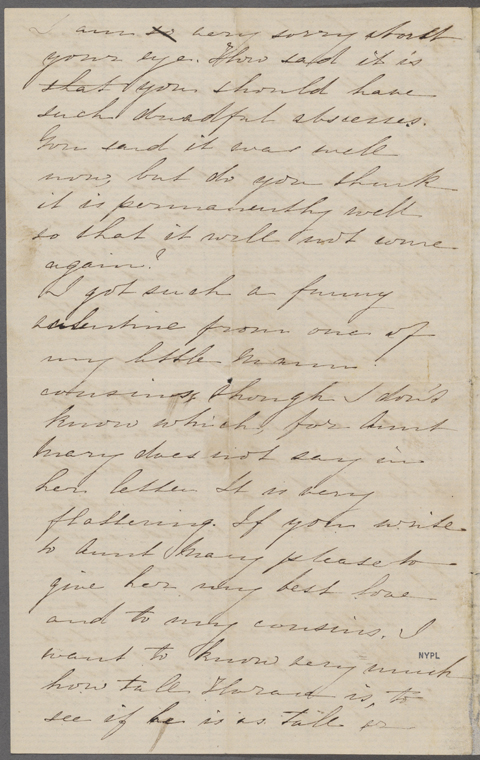 I am so very sorry about
your eye. How sad it is
that you should have
such dreadful abscesses.
You said it was well
now, but do you think
it is permanently well
so that it will not come
again?
I got such a funny
valentine from one of
my little Mann
cousins, though I don't
know which, for Aunt
Mary does not say in
her letter. It is very
flattering. If you write
to Aunt Mary please to
give her my best love
and to my cousins. I
want to know very much
how tall Horace is, to
see if he is as tall or
NYPL